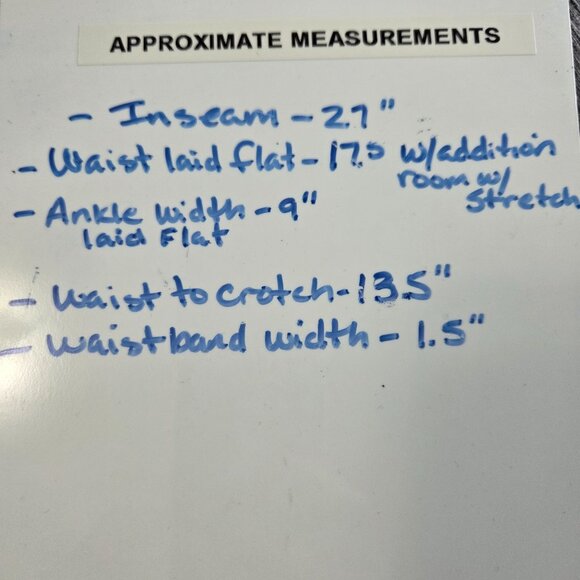 APPROXIMATE MEASUREMENTS
- Inseam - 27"
- Waist laid flat - 17.5 w/addition
room w/
stretch
- Ankle width - 9"
laid Flat
- Waist to crotch - 13.5"
- Waistband width - 1.5"